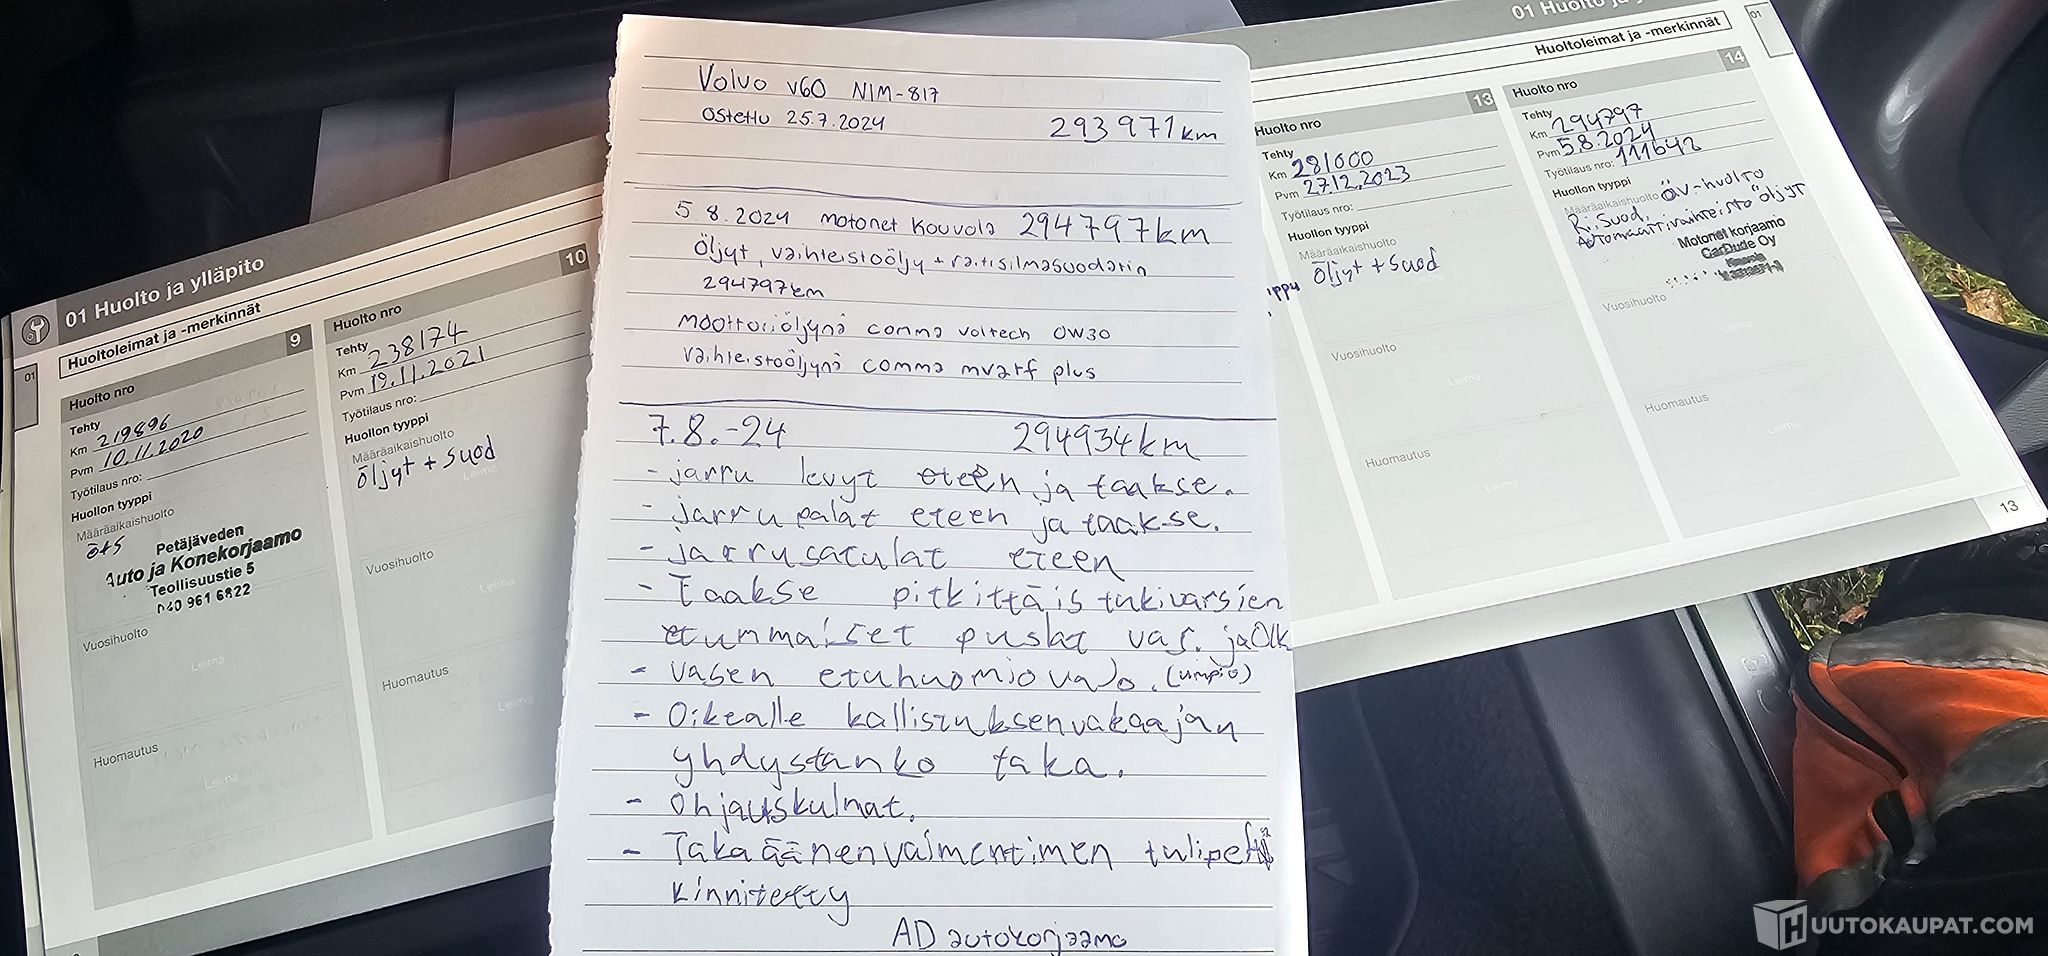 01 Huolto ja ylläpito
Huoltoleimat ja -merkinnät
01
Huolto nro 9
Tehty
Km 219896
Pvm 10.11.2020
Työtilaus nro:
Huollon tyyppi
Määräaikaishuolto
ö+s
Petäjäveden
Auto ja Konekorjaamo
Teollisuustie 5
040 961 6822
Vuosihuolto
Leima
Huomautus
Leima
Huolto nro 10
Tehty
Km 238174
Pvm 19.11.2021
Työtilaus nro:
Huollon tyyppi
Määräaikaishuolto
öljyt + suod
Leima
Vuosihuolto
Leima
Huomautus
Leima
Volvo v60 NIM-817
ostettu 25.7.2024 293971km
5 8.2024 motonet Kouvola 294797km
Öljyt, vaihteistoöljy + raitisilmasuodatin
294797km
moottoriöljynä comma voltech 0W30
vaihteistoöljynä comma mvatf plus
7.8.-24 294934km
- jarru levyt eteen ja taakse.
- jarrupalat eteen ja taakse.
- jarrusatulat eteen
- Taakse pitkittäistukivarsien
etummaiset puslat vas. ja Oik
- vasen etuhuomiovalo. (umpio)
- Oikealle kallistuksenvakaajan
yhdystanko taka.
- Ohjauskulmat.
- Takaäänenvaimentimen tulipelti
kinnitetty
AD autokorjaamo
01 Huolto ja
Huoltoleimat ja -merkinnät
01
Huolto nro 13
Tehty
Km 281000
Pvm 27.12.2023
Työtilaus nro:
Huollon tyyppi
Määräaikaishuolto
Öljyt + suod
Vuosihuolto
Leima
Huomautus
Leima
Huolto nro 14
Tehty
Km 294797
Pvm 5.8.2024
Työtilaus nro: 111642
Huollon tyyppi
Määräaikaishuolto
ÖV-huolto
R.i. Suod,
Automaattivaihteisto öljyt
Motonet korjaamo
CarDude Oy
Kouvola
Vuosihuolto
Leima
Huomautus
Leima
13
HUUTOKAUPAT.COM